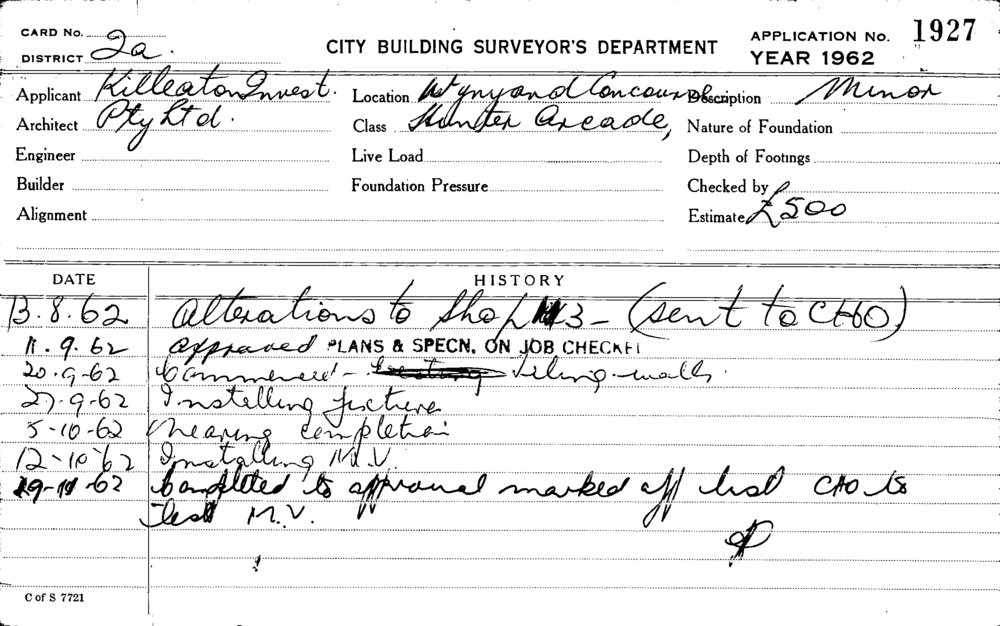 CARD No.
DISTRICT 2a.
CITY BUILDING SURVEYOR'S DEPARTMENT
APPLICATION No. 1927
YEAR 1962
Applicant Killeaton Invest.
Location Wynyard Concourse
Description Minor
Architect Pty Ltd.
Class Hunter Arcade,
Nature of Foundation
Engineer
Live Load
Depth of Footings
Builder
Foundation Pressure
Checked by
Alignment
Estimate £500
DATE HISTORY
13.8.62 Alterations to Shop 3 - (sent to CHO)
11.9.62 approved PLANS & SPECN. ON JOB CHECKE
20.9.62 Commenced - tiling walls.
27.9.62 Installing fixtures
5-10-62 nearing completion
12-10-62 Installing M.V.
62 Completed to approval marked off list CHO to
test M.V.
C of S 7721